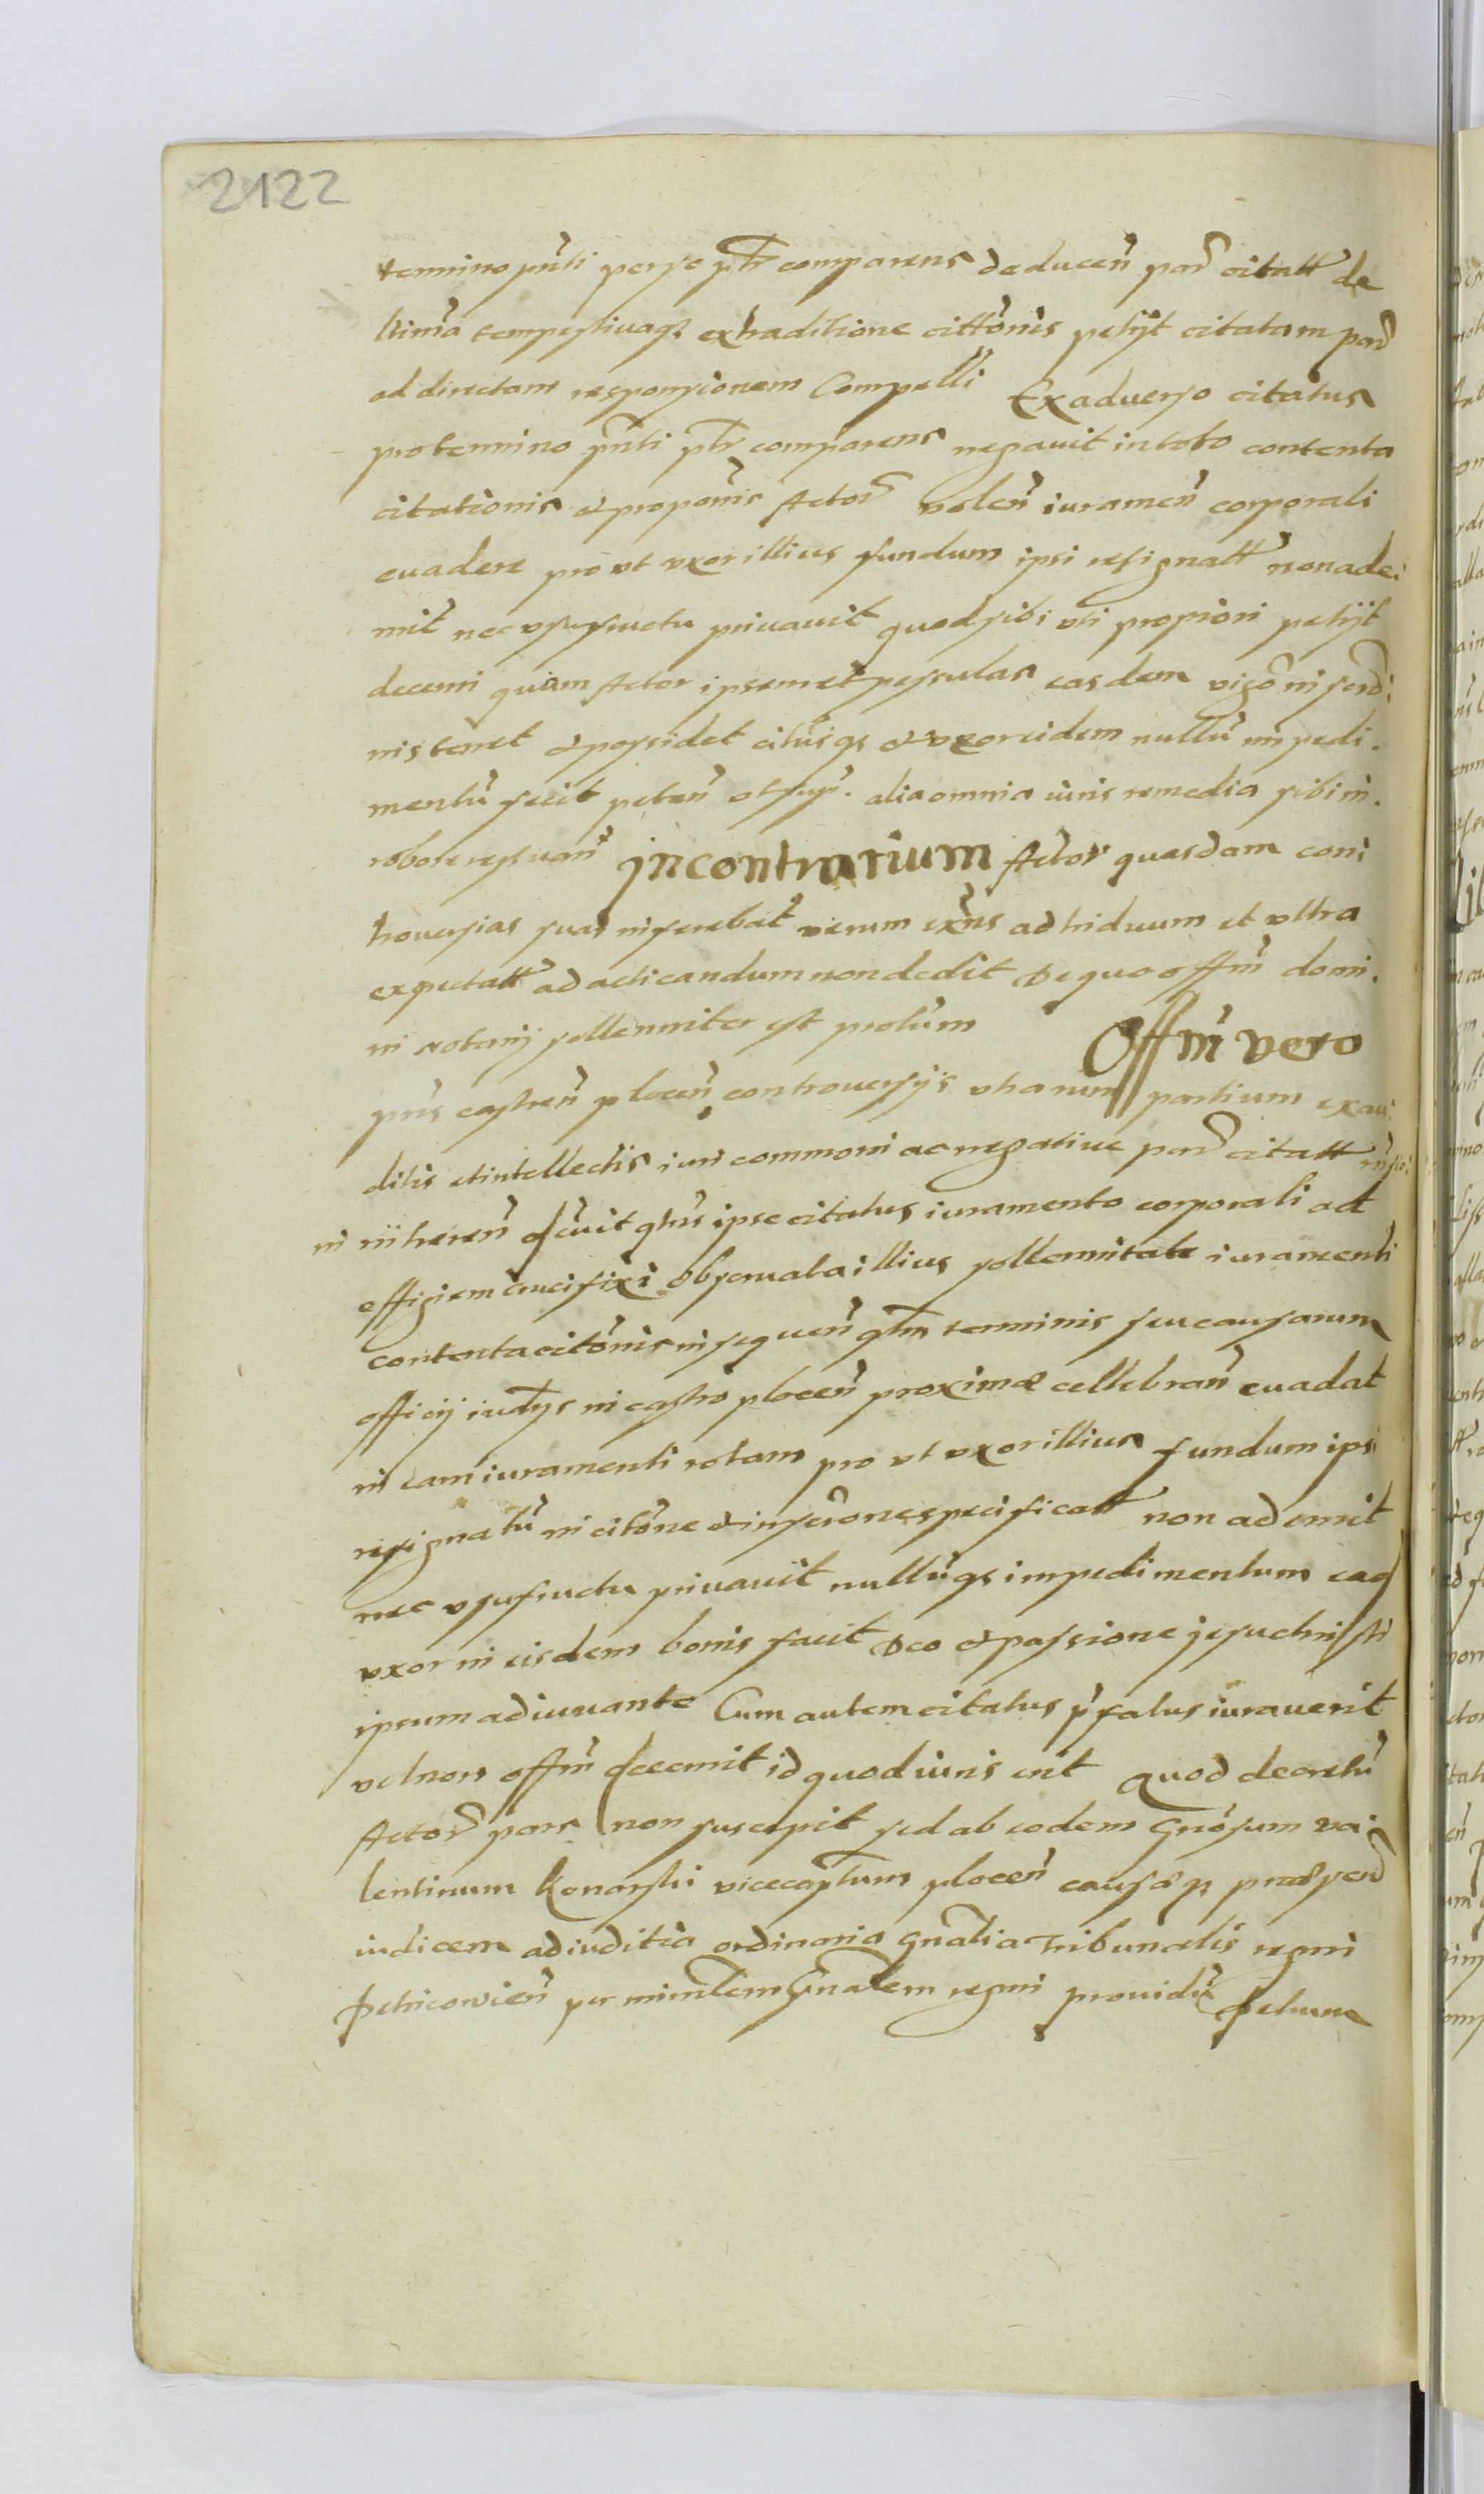 2122
termino pñti per se pltr comparens deducen̄ par citatt de
ltima tempestiuaqȝ extraditione cittōnis petijt citatam par
ad directam responsionem Compelli Ex aduerso citatus
pro termino pñti pltr comparens negauit in toto contenta
citationis et propōnis Actor volen̄ iuramen̄ corporali
euadere pro vt vxor illius fundum ipsi resignatt non ade:
mit nec vsufructu priuauit quod sibi vti propriori petijt
decerni quam Actor ipsemet easdem vigō inscrō
nis tenet et possidet citusqȝ et vxor eidem nullū impedi.
mentū fecit peten̄ vt supr. alia omnia iuris remedia sibi in.
robore reseruan̄ In contrarium Actor quasdam con
trouersias suas inferebat verum exñs ad triduum et vltra
expectatt ad acticandum non dedit De quo offm̄ domi.
ni notarij sollenniter est protūm Offm̄ vero
pñs castren̄ plocen̄ controuersijs vtrarum partium exau
ditis et intellectis iuri commoni ac negatiue par citatt
in inheren̄ dcreuit qtūs ipse citatus iuramento corporali ad
effigiem crucifixi obseruata illius sollennitate iuramenti
contenta citōnis in sequen̄ terminis seu causarum
officij iudys in castro plocen̄ proximæ cellebran̄ euadat
in eam iuramenti rotam pro vt vxor illius fundum ipsi
resignatū in citōne et inscrōne specificatt non ademit
nec vsufructu priuauit nullūqȝ impedimentum eaq
vxor in eisdem bonis facit Deo et passione jesu christi
ipsum adiuuante Cum autem citatus p̄fatus iurauerit
vel non offm̄ decernit id quod iuris erit Quod decretū
Actor pars non suscepit sed ab eodem Gnōsum va
lentinum Konarski vicecaptum plocen̄ causæqȝ præsen
iudicem ad iuditia ordinaria gnālia tribunalis regni
petricowien̄ per minrlem Gnālem regni prouidū petrum